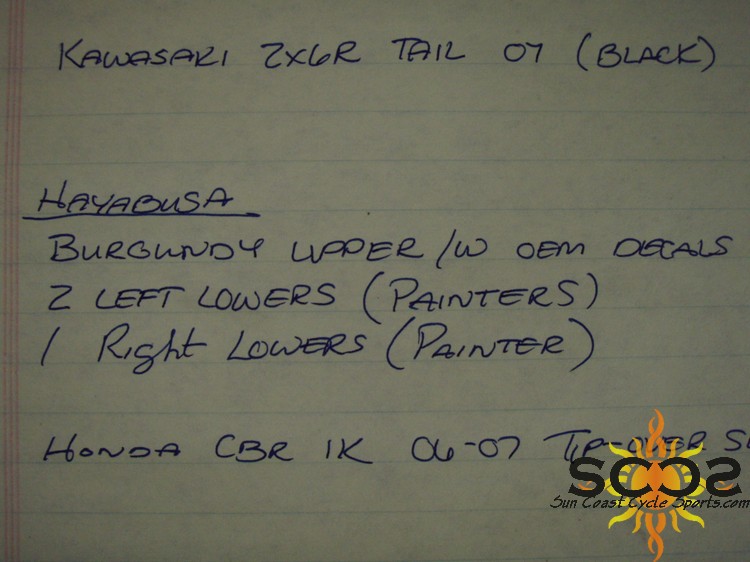 KAWASAKI ZX6R TAIL 07 (BLACK)
HAYABUSA
BURGUNDY UPPER /W OEM DECALS
2 LEFT LOWERS (PAINTERS)
1 Right LOWERS (PAINTER)
HONDA CBR 1K 06-07 TIP-OVER
SCCS
Sun Coast Cycle Sports.com